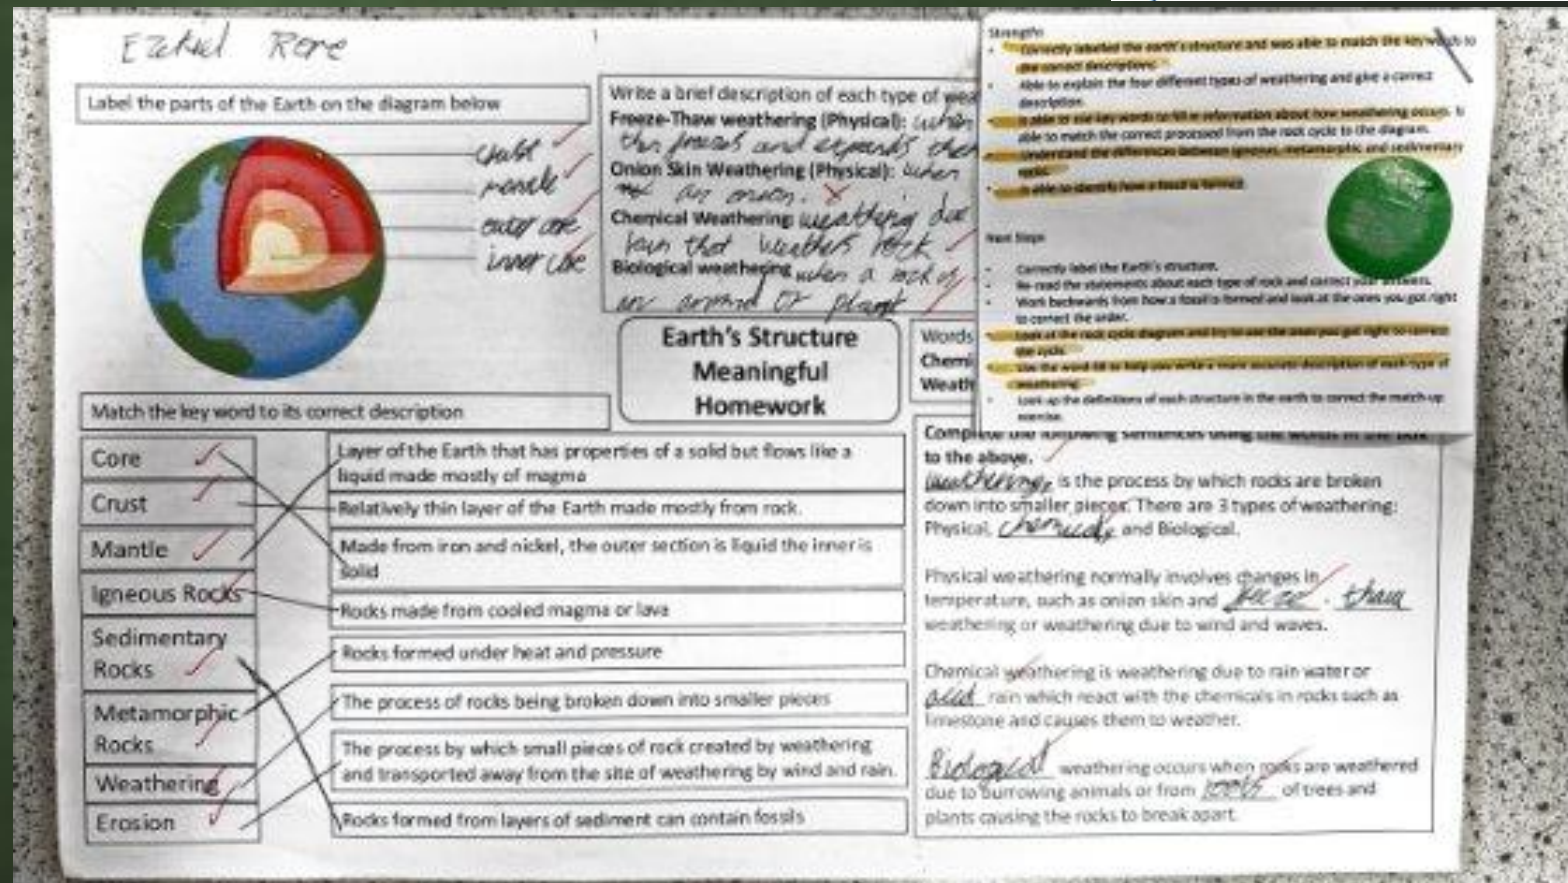 Ezekiel Rore
Label the parts of the Earth on the diagram below
crust
mantle
outer core
inner core
Write a brief description of each type of wea
Freeze-Thaw weathering (Physical): when
this freezes and expands then
Onion Skin Weathering (Physical): when
an onion.
Chemical Weathering: weathering due
rain that weathers rock
Biological weathering when a rock
an animal or plant
Strengths
Correctly labelled the earth's structure and was able to match the key words to
the correct descriptions.
Able to explain the four different types of weathering and give a correct
description.
Is able to use key words to fill in information about how weathering occurs. Is
able to match the correct processed from the rock cycle to the diagram.
Understand the differences between igneous, metamorphic and sedimentary
rocks.
Is able to identify how a fossil is formed.
Next Steps
Correctly label the Earth's structure.
Re-read the statements about each type of rock and correct your answers.
Work backwards from how a fossil is formed and look at the ones you got right
to correct the order.
Look at the rock cycle diagram and try to use the ones you got right to correct
the cycle.
Use the word fill to help you write a more accurate description of each type of
weathering.
Look up the definitions of each structure in the earth to correct the match-up
exercise.
Earth's Structure
Meaningful
Homework
Words
Chemi
Weath
Match the key word to its correct description
Core
Crust
Mantle
Igneous Rocks
Sedimentary
Rocks
Metamorphic
Rocks
Weathering
Erosion
Layer of the Earth that has properties of a solid but flows like a
liquid made mostly of magma
Relatively thin layer of the Earth made mostly from rock.
Made from iron and nickel, the outer section is liquid the inner is
solid
Rocks made from cooled magma or lava
Rocks formed under heat and pressure
The process of rocks being broken down into smaller pieces
The process by which small pieces of rock created by weathering
and transported away from the site of weathering by wind and rain.
Rocks formed from layers of sediment can contain fossils
Complete the following sentences using the words in the box
to the above.
Weathering, is the process by which rocks are broken
down into smaller pieces. There are 3 types of weathering:
Physical, chemical, and Biological.
Physical weathering normally involves changes in
temperature, such as onion skin and freeze - thaw
weathering or weathering due to wind and waves.
Chemical weathering is weathering due to rain water or
acid rain which react with the chemicals in rocks such as
limestone and causes them to weather.
Biological weathering occurs when rocks are weathered
due to burrowing animals or from roots of trees and
plants causing the rocks to break apart.